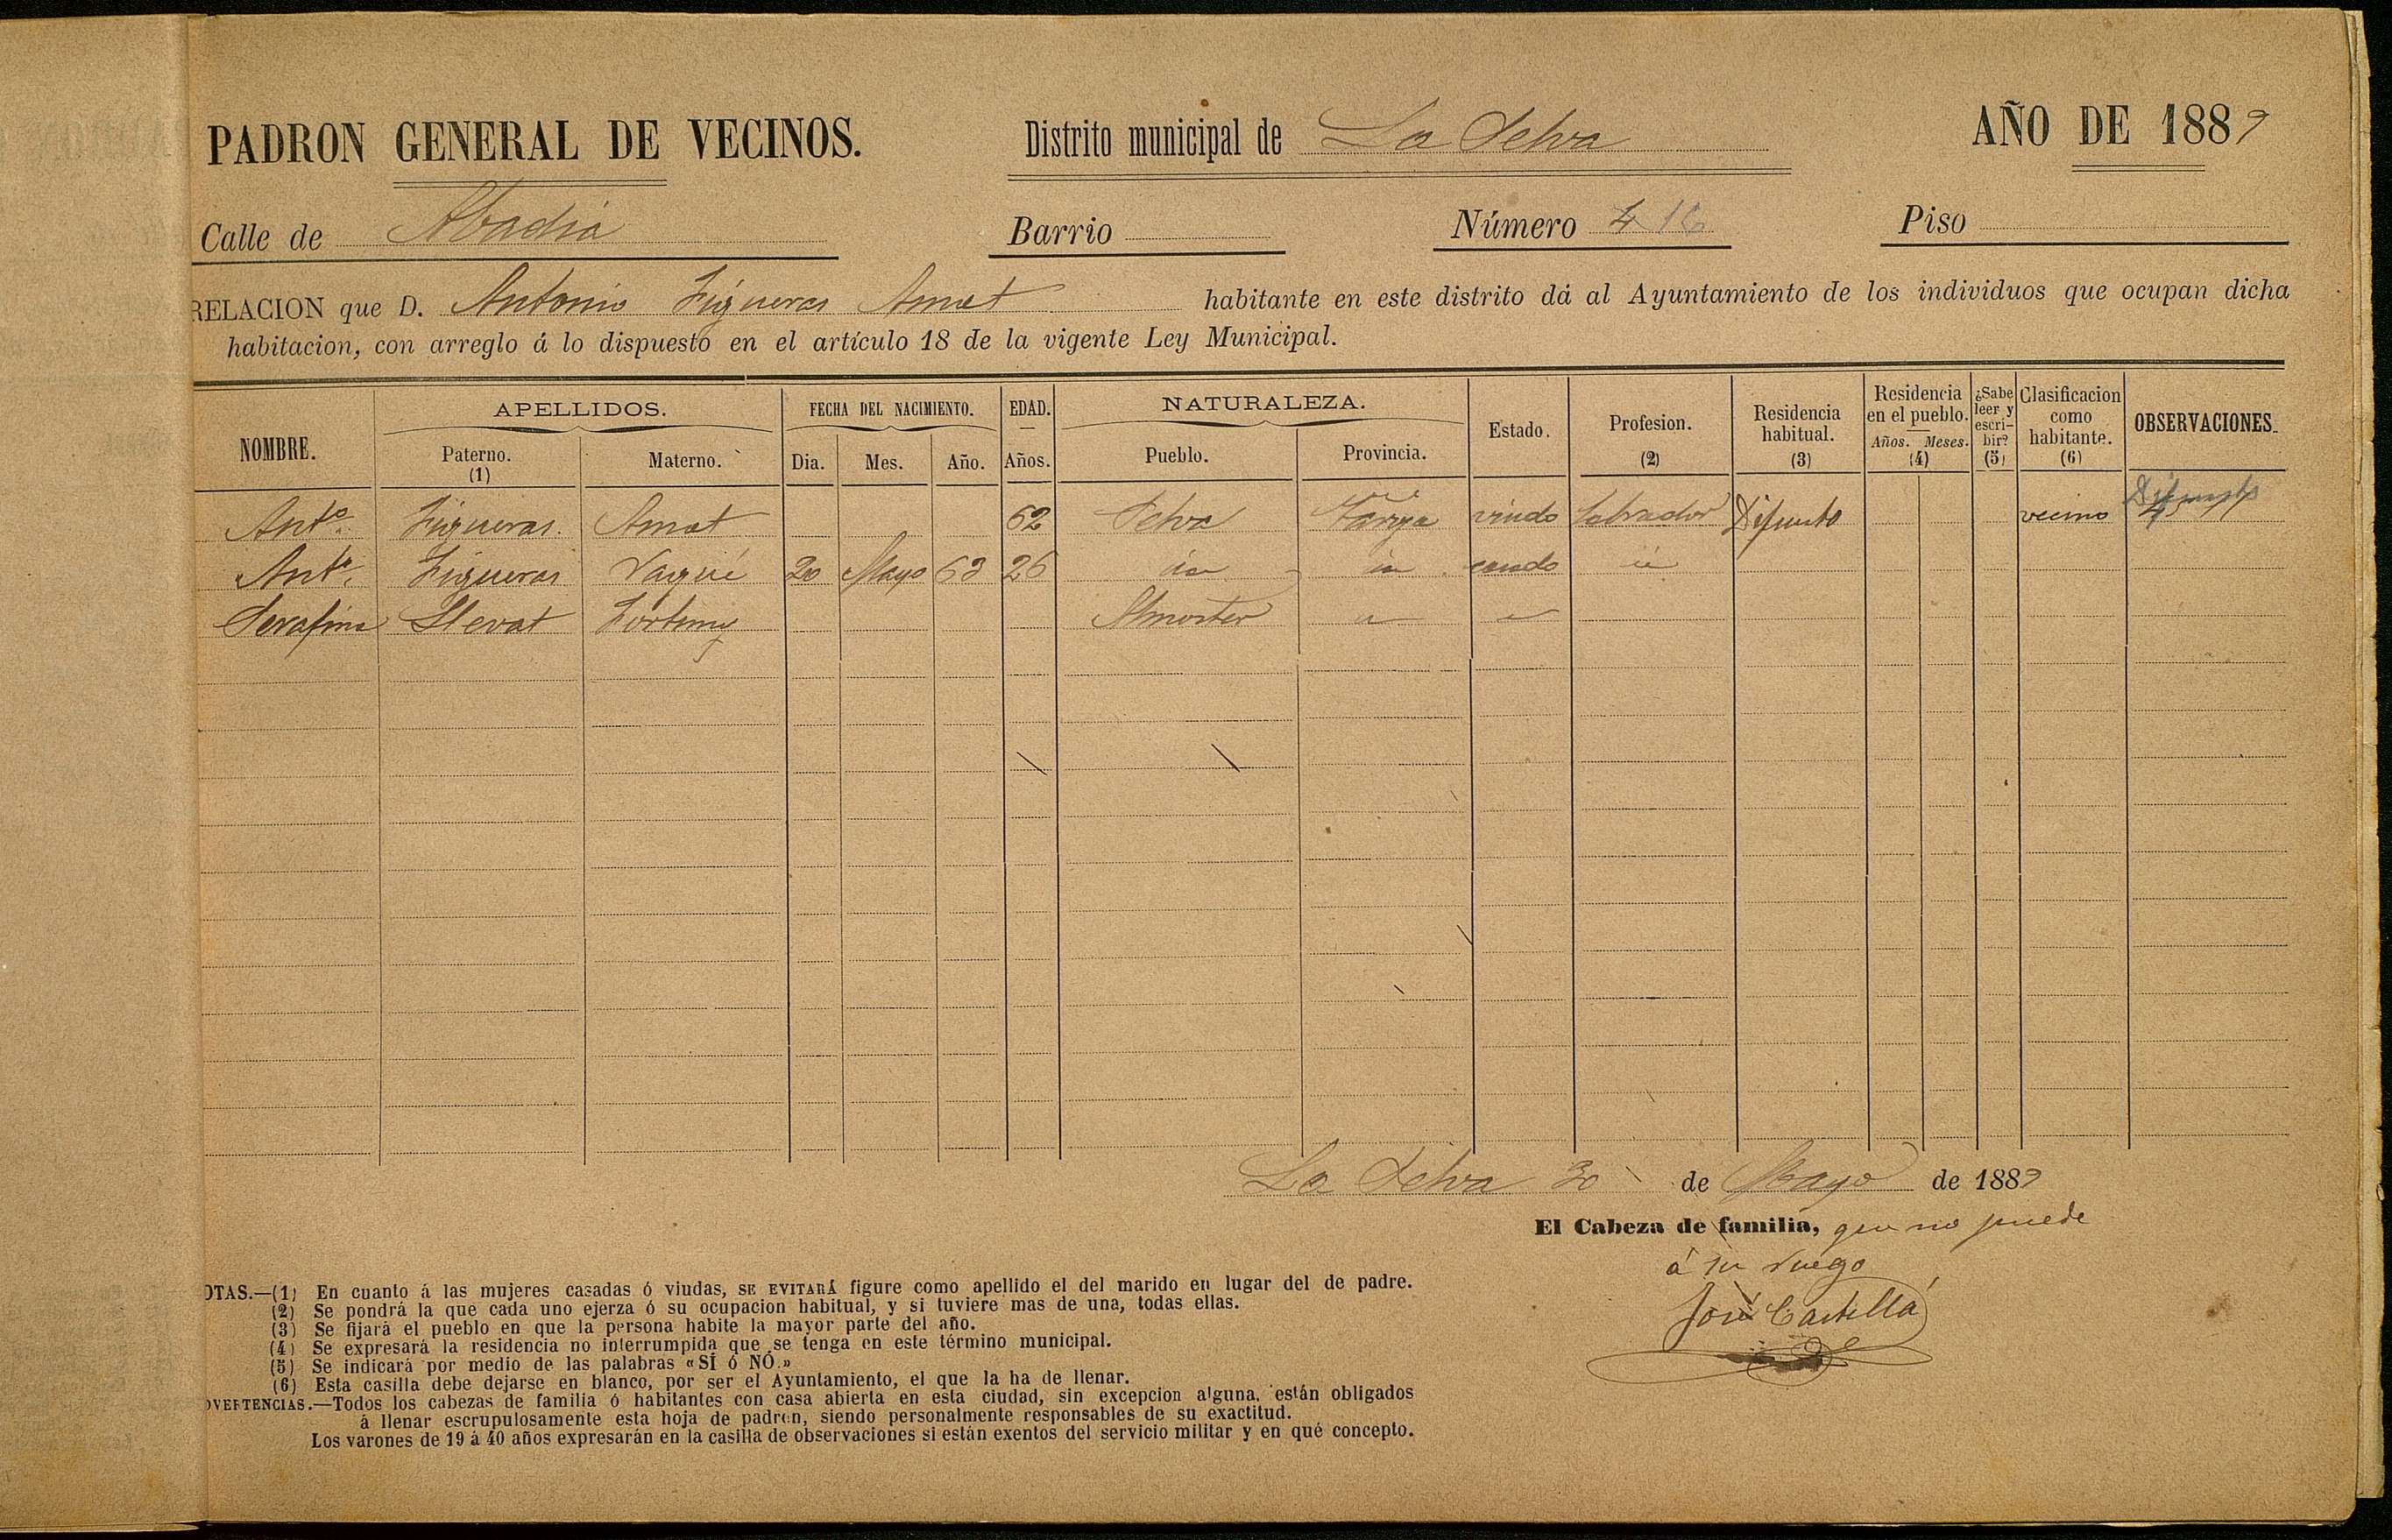 PADRON GENERAL DE VECINOS. Distrito municipal de La Selva AÑO DE 1889
Calle de Abadia Barrio Número 4 16 Piso
RELACION que D. Antonio Figueras Amat habitante en este distrito dá al Ayuntamiento de los individuos que ocupan dicha
habitacion, con arreglo á lo dispuesto en el artículo 18 de la vigente Ley Municipal.
NOMBRE. APELLIDOS. Paterno. (1) Materno. FECHA DEL NACIMIENTO. Dia. Mes. Año. EDAD. Años. NATURALEZA. Pueblo. Provincia. Estado. Profesion. (2) Residencia habitual. (3) Residencia en el pueblo. Años. Meses. (4) ¿Sabe leer y escribir? (5) Clasificacion como habitante. (6) OBSERVACIONES.
Antº Figueras Amat 62 Selva Tarrgª viudo Labrador Difunto vecino Difunto
Antº Figueras Vaqué 20 Mayo 63 26 id id casado id
Serafina Llevat Fortuny Almoster " "
La Selva 30 de Mayo de 1889
El Cabeza de familia, que no puede
á su ruego
José Castellá
OTAS.—(1) En cuanto á las mujeres casadas ó viudas, SE EVITARÁ figure como apellido el del marido en lugar del de padre.
(2) Se pondrá la que cada uno ejerza ó su ocupacion habitual, y si tuviere mas de una, todas ellas.
(3) Se fijará el pueblo en que la persona habite la mayor parte del año.
(4) Se expresará la residencia no interrumpida que se tenga en este término municipal.
(5) Se indicará por medio de las palabras «SÍ ó NÓ.»
(6) Esta casilla debe dejarse en blanco, por ser el Ayuntamiento, el que la ha de llenar.
DVERTENCIAS.—Todos los cabezas de familia ó habitantes con casa abierta en esta ciudad, sin excepcion alguna, están obligados
á llenar escrupulosamente esta hoja de padron, siendo personalmente responsables de su exactitud.
Los varones de 19 á 40 años expresarán en la casilla de observaciones si están exentos del servicio militar y en qué concepto.